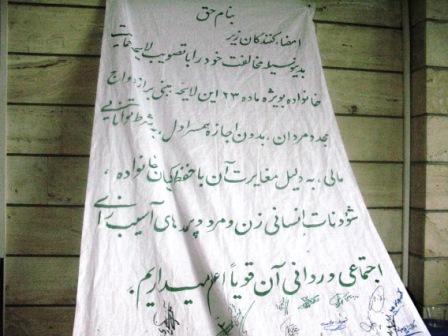 بنام حق
امضاءکنندگان زیر
بدینوسیله مخالفت خود را با تصویب لایحه حمایت
خانواده بویژه ماده ۲۳ این لایحه مبنی بر ازدواج
مجدد مردان، بدون اجازه همسر اول، به شرط توانایی
مالی، به دلیل مغایرت آن با حفظ کیان خانواده،
شؤونات انسانی زن و مرد و پیامدهای آسیب زای
اجتماعی و روانی آن قویاً اعلام میداریم.